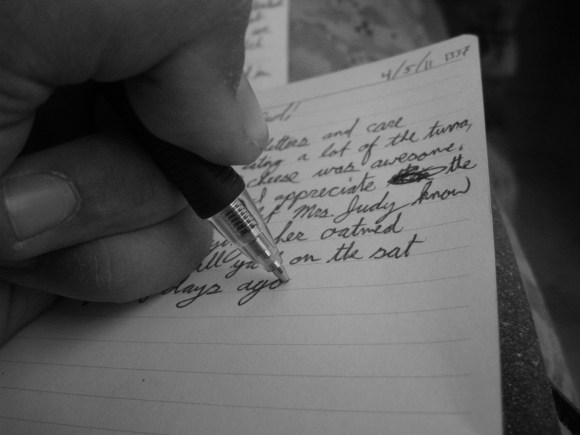 4/5/11 1337
letters and care
eating a lot of the tuna,
cheese was awesome.
appreciate the
Mrs. Judy know
her oatmeal
call ya on the sat
days ago